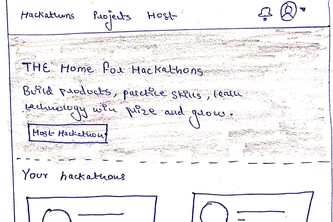 Hackathons Projects Host
THE Home for Hackathons
Build products, practice skills, learn
technology win prize and grow.
Host Hackathon
Your hackathons